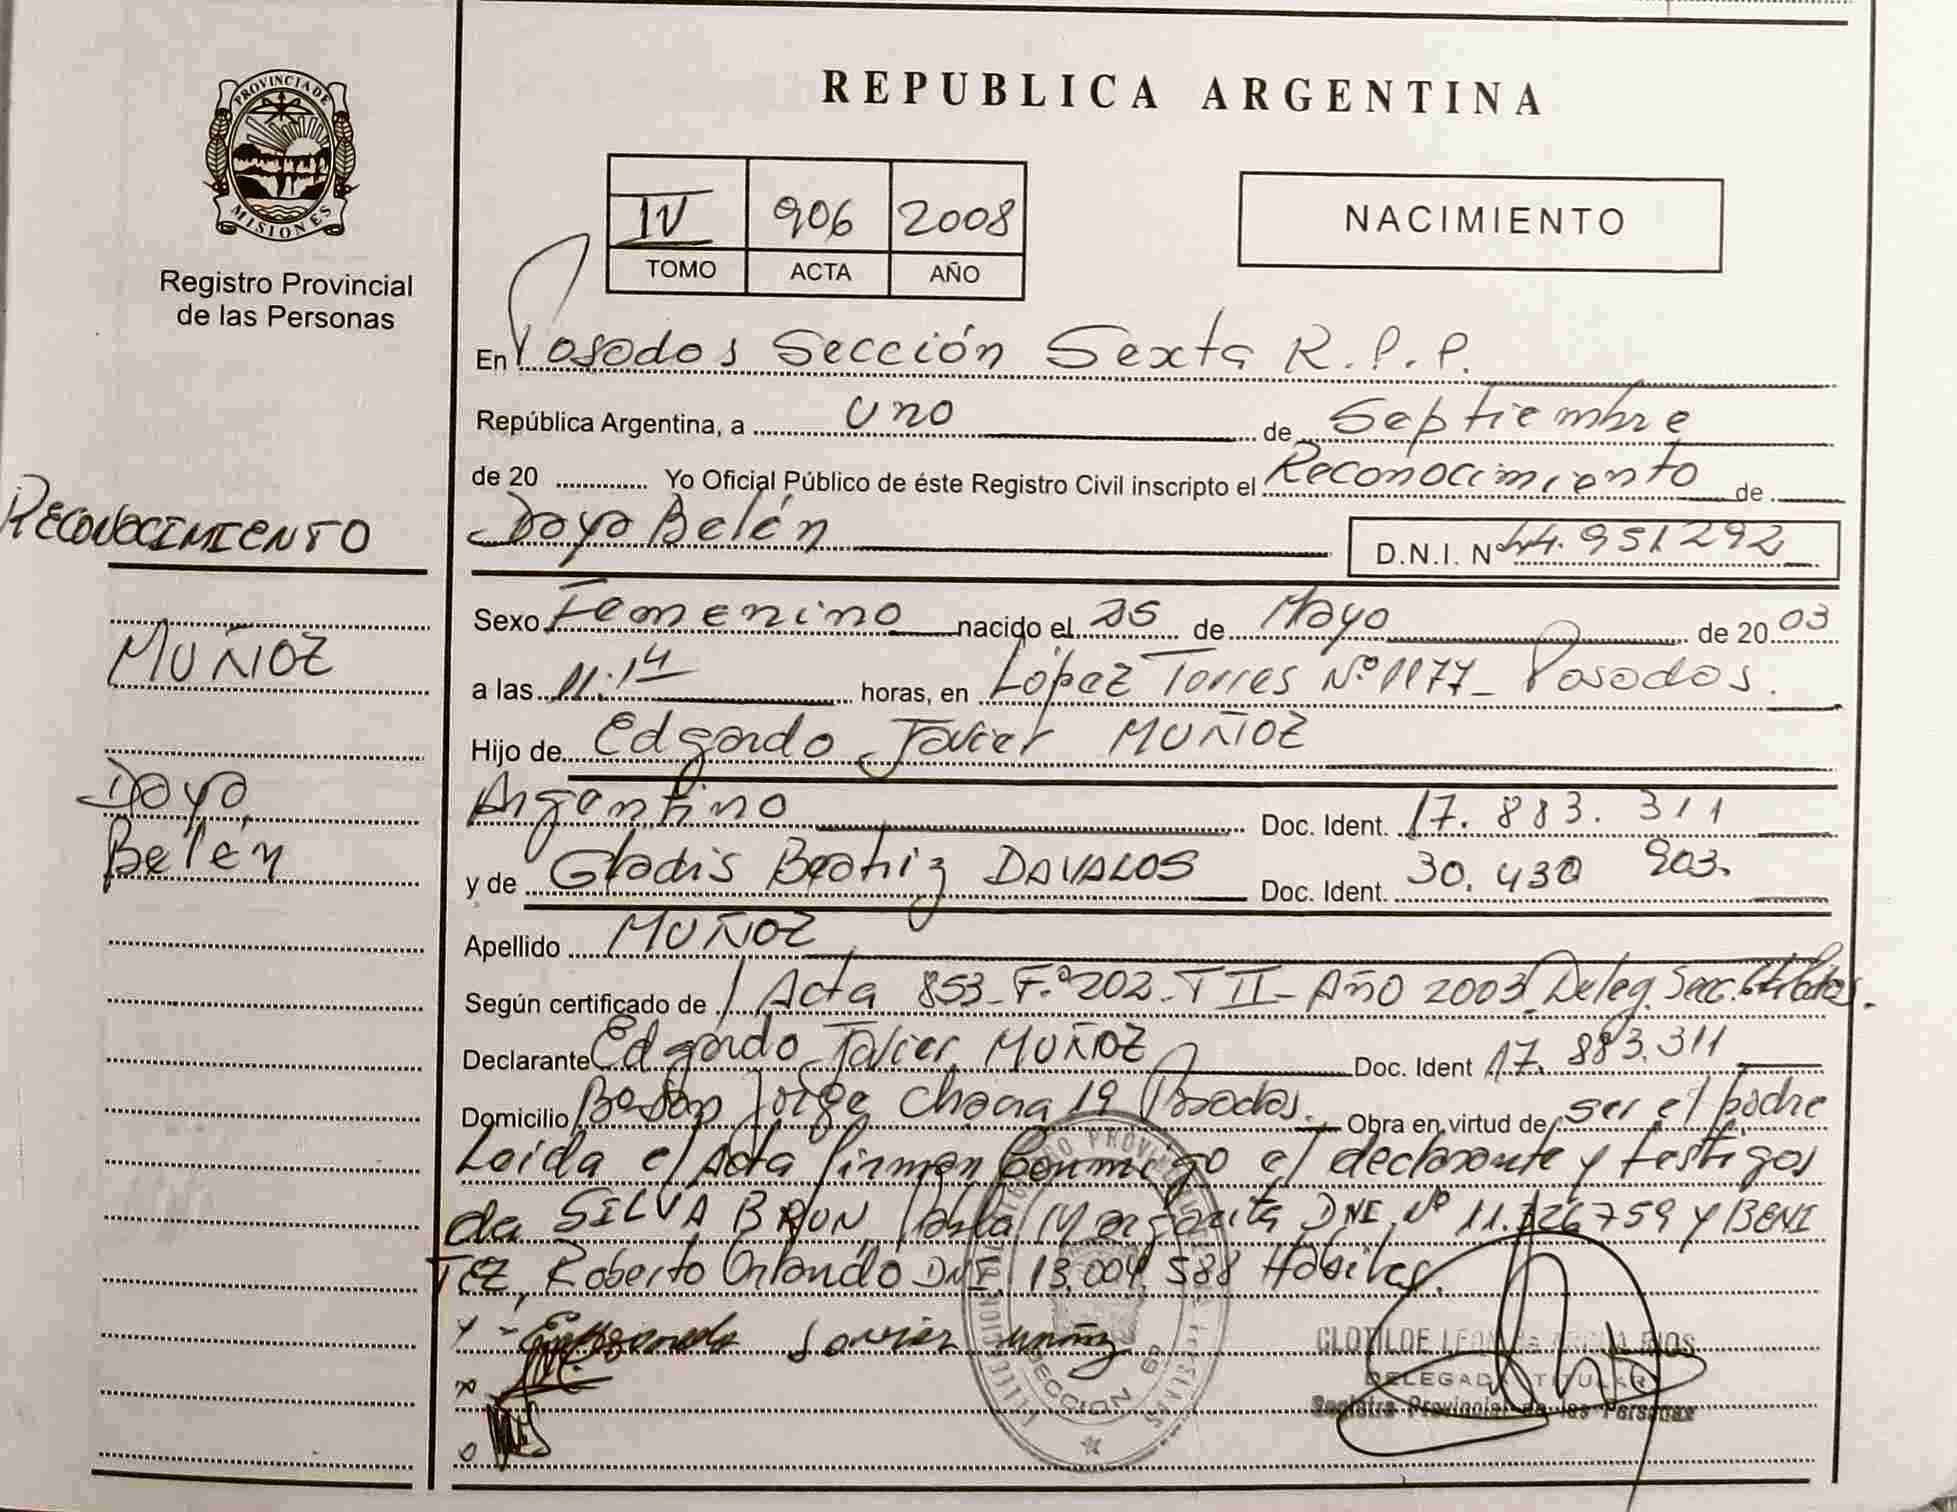 PROVINCIA DE
MISIONES
Registro Provincial
de las Personas
RECONOCIMIENTO
MUÑOZ
Daya
Belén
REPUBLICA ARGENTINA
IV 906 2008
TOMO ACTA AÑO
NACIMIENTO
En Posadas Sección Sexta R.P.P.
República Argentina, a uno de Septiembre
de 20 Yo Oficial Público de éste Registro Civil inscripto el Reconocimiento de
Daya Belén D.N.I. Nº 44.951.292
Sexo Femenino nacido el 25 de Mayo de 20 03
a las 11.14 horas, en López Torres Nº 1177- Posadas.
Hijo de Edgardo Javier MUÑOZ
Argentino Doc. Ident. 17.883.311
y de Gladis Beatriz DAVALOS Doc. Ident. 30.430 903.
Apellido MUÑOZ
Según certificado de Acta 853-F.º202-T II-AÑO 2003 Deleg. Secc.
Declarante Edgardo Javier MUÑOZ Doc. Ident 17.883.311
Domicilio Jorge Posadas. Obra en virtud de ser el padre
Leida el Acta firman conmigo el declarante y testigos
de SILVA BRUN, Margarita DNI Nº 11.726759 y BENI
TEZ, Roberto Orlando DNI 13.004.588 Hábiles.
Javier Muñoz
CLOTILDE RIOS
DELEGADA TITULAR
Registro Provincial de las Personas
SECCION 6ª